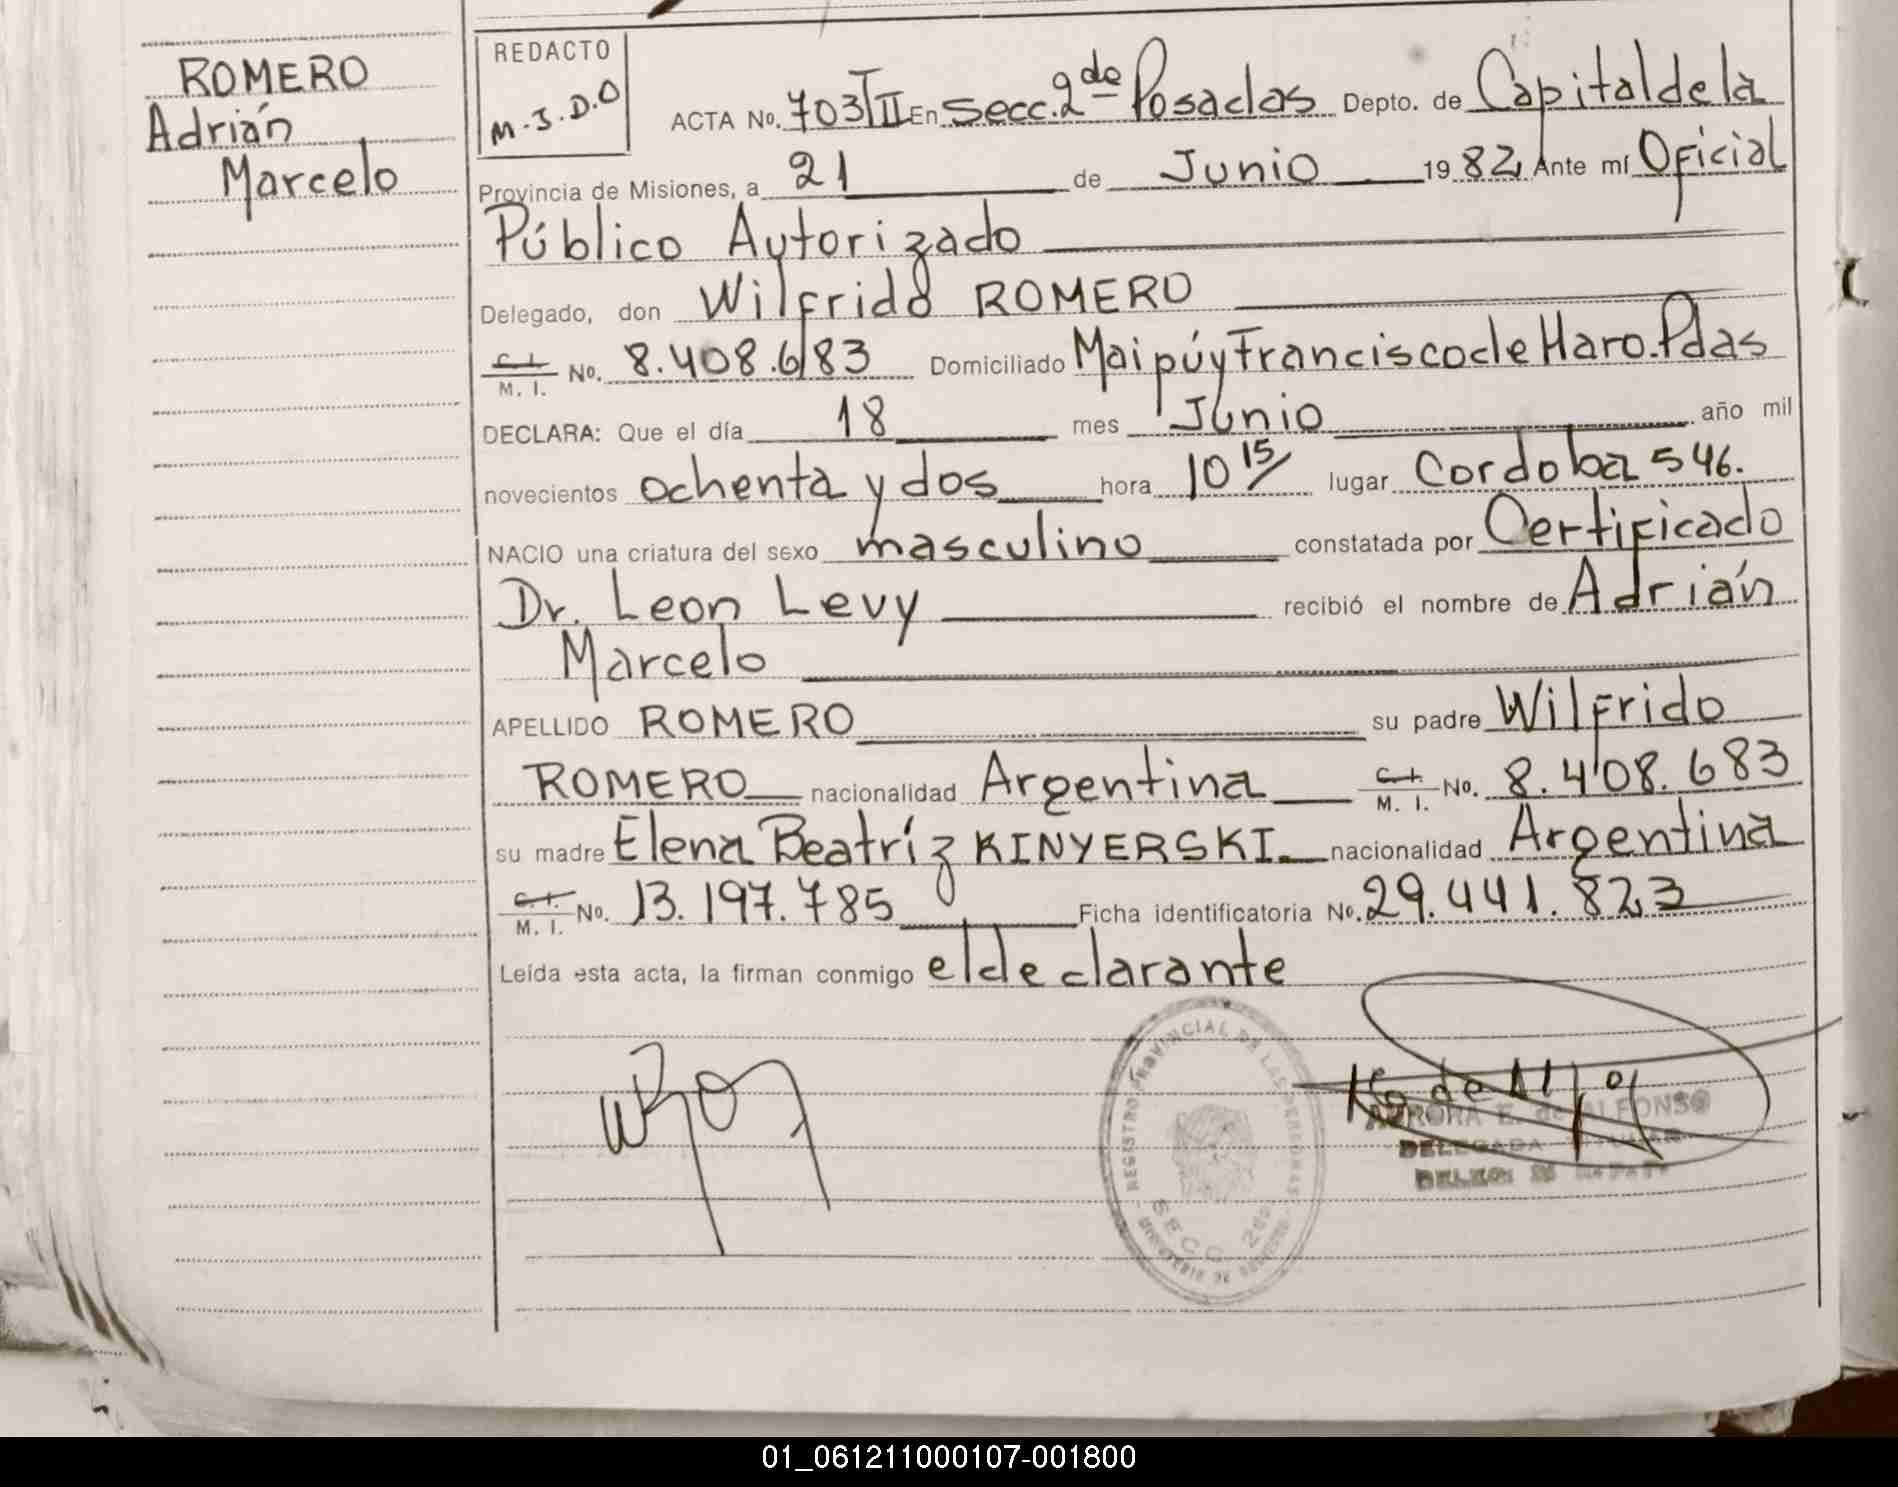 ROMERO
Adrián
Marcelo
REDACTO
M.J.D.O
ACTA No. 703/II En Secc. 2da Posadas Depto. de Capital de la
Provincia de Misiones, a 21 de Junio 1982 Ante mí Oficial
Público Autorizado
Delegado, don Wilfrido ROMERO
C.I. M. I. No. 8.408.683 Domiciliado Maipú y Francisco de Haro. Pdas
DECLARA: Que el día 18 mes Junio año mil
novecientos ochenta y dos hora 10 15/ lugar Cordoba 546.
NACIO una criatura del sexo masculino constatada por Certificado
Dr. Leon Levy recibió el nombre de Adrián
Marcelo
APELLIDO ROMERO su padre Wilfrido
ROMERO nacionalidad Argentina C.I. M. I. No. 8.408.683
su madre Elena Beatríz KINYERSKI. nacionalidad Argentina
C.I. M. I. No. 13.197.785 Ficha identificatoria No. 29.441.823
Leída esta acta, la firman conmigo el declarante
REGISTRO PROVINCIAL DE LAS PERSONAS
SECC. 2da
AURORA E. de ALFONSO
DELEGADA TITULAR
01_061211000107-001800